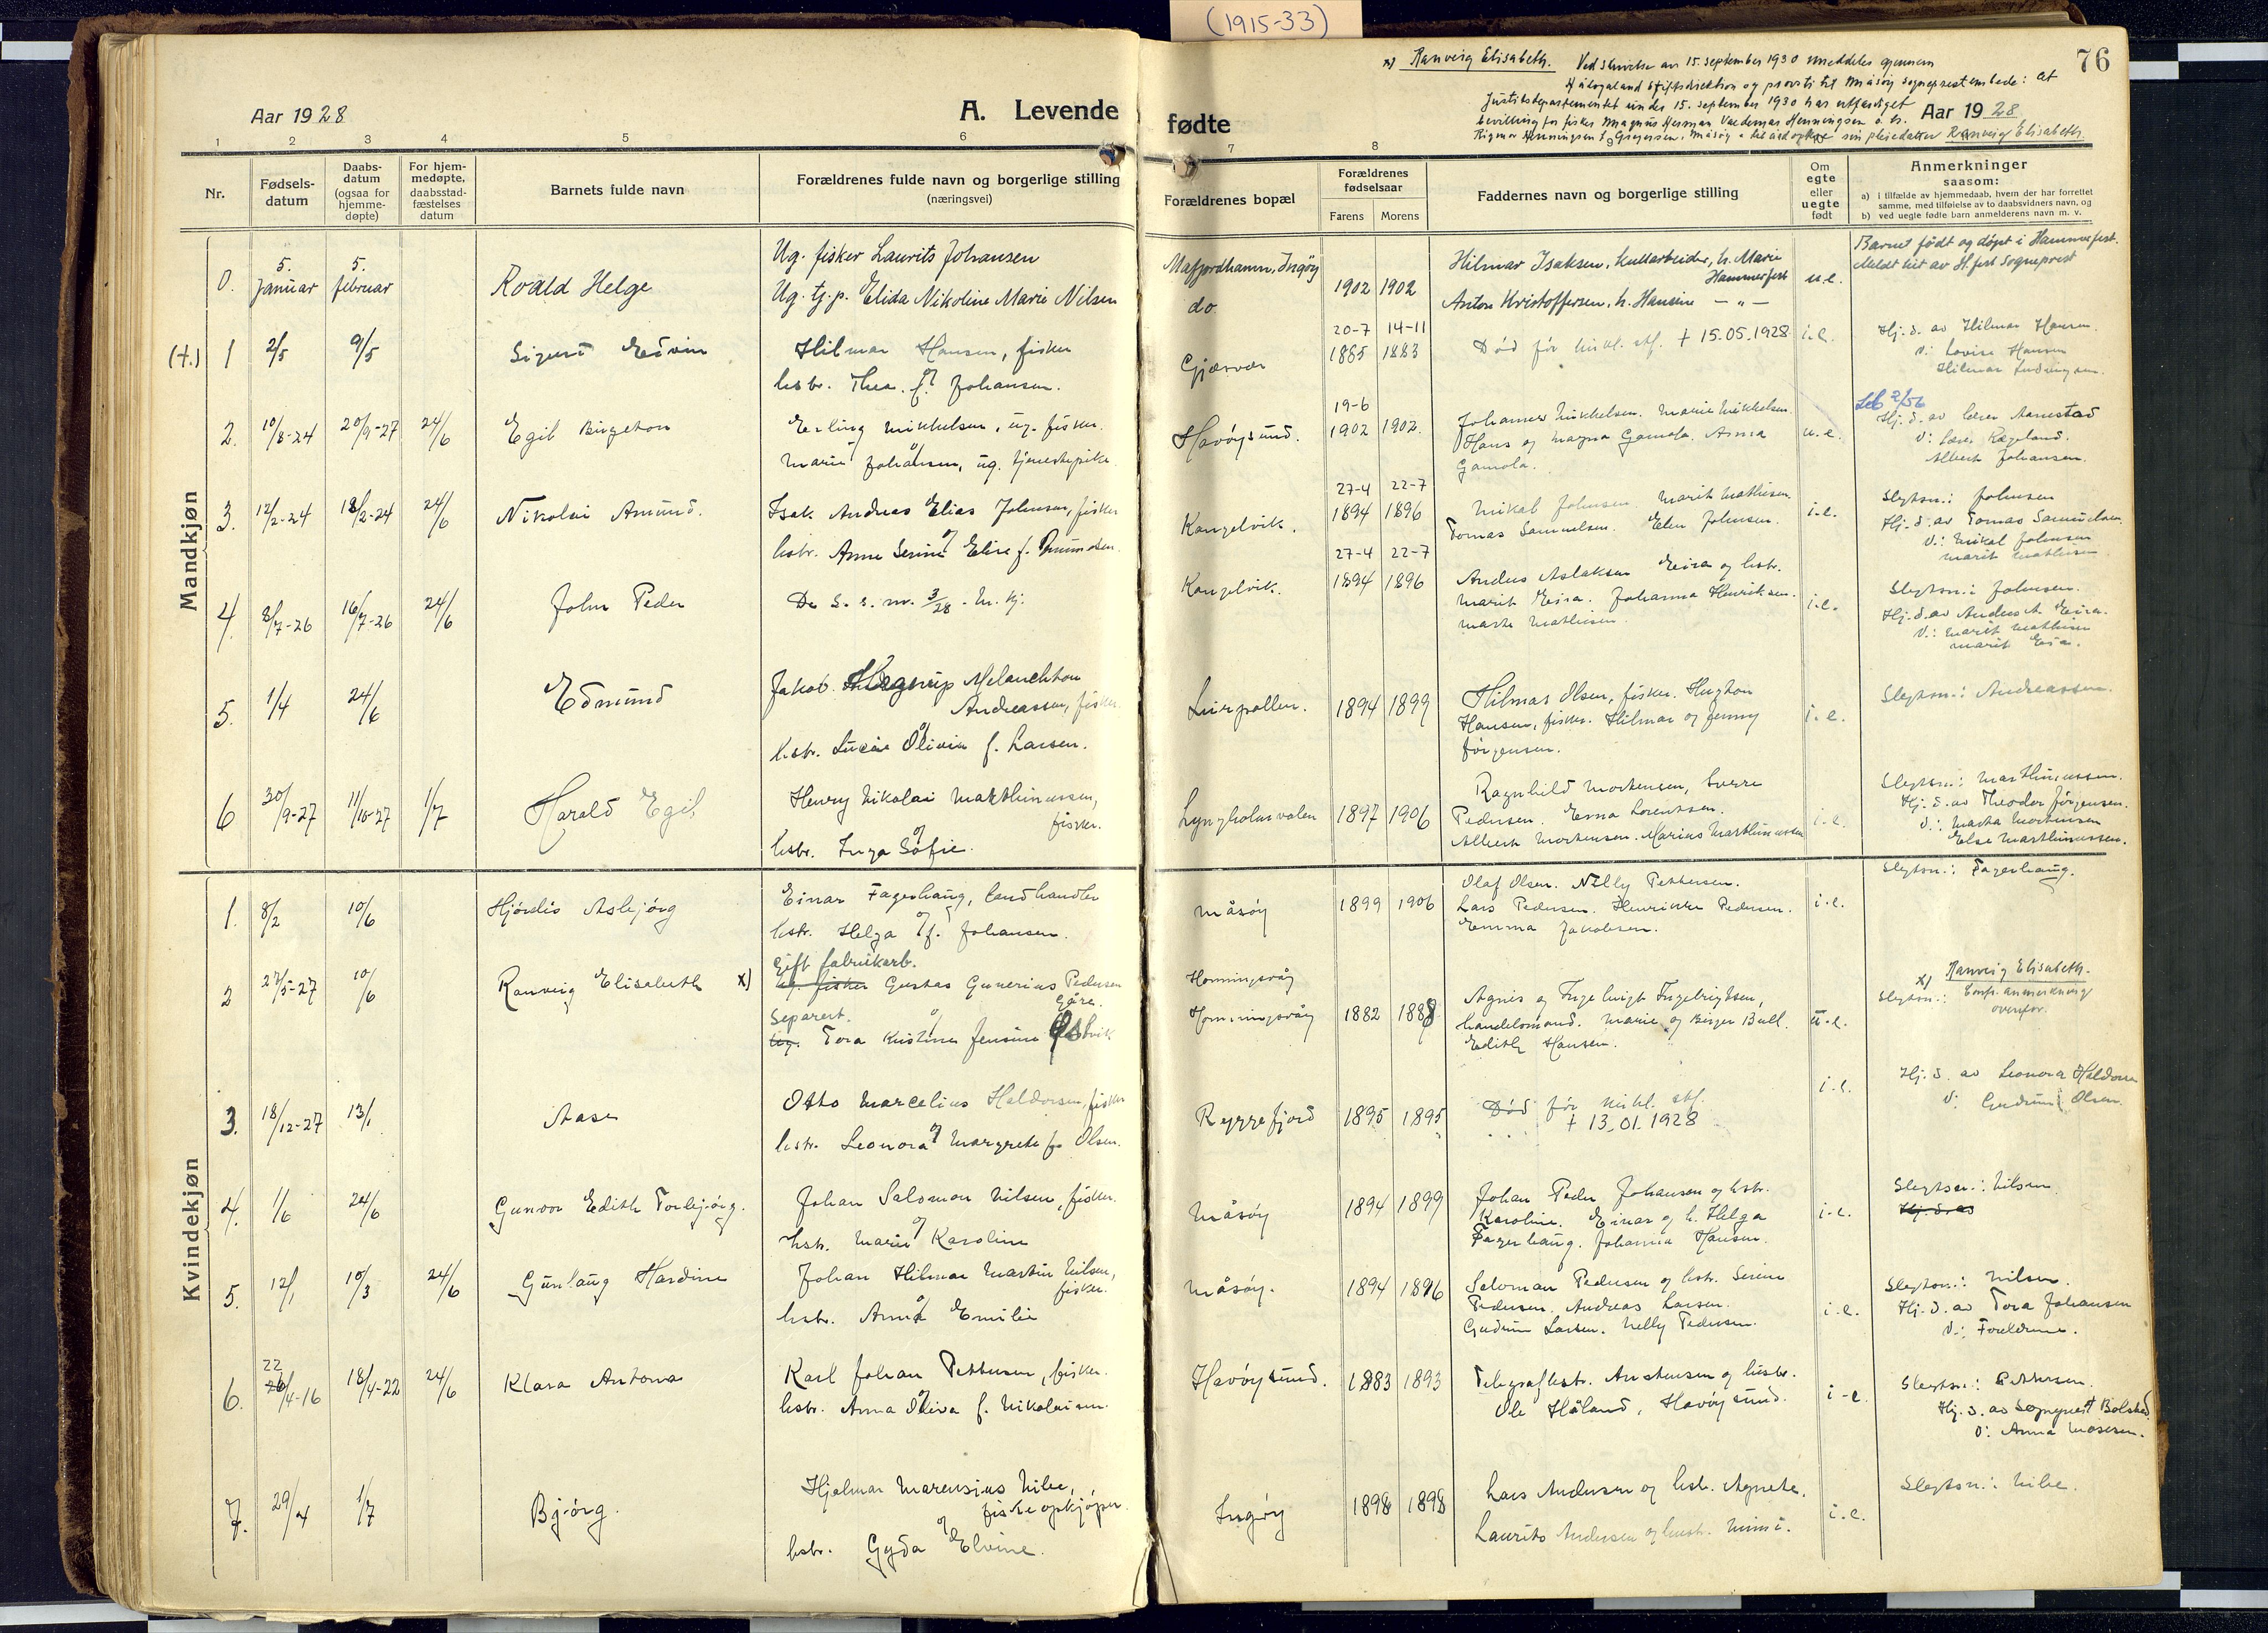 (1915-33)
76
x) Ranveig Elisabeth. Ved skrivelse av 15. september 1930 meddeles gjennem
Hålogaland stiftsdirektion og provsti til Måsøy sogneprestembede: at
Justitsdepartementet under 15. september 1930 har utferdiget
bevilling for fisker Magnus Herman Valdemar Henningsen o. h.
Rigmor Henningsen f. Gregersen, Måsøy - til sin pleiedatter Ranveig Elisabeth.
Aar 1928
A. Levende fødte
Aar 1928
1 2 3 4 5 6 7 8
Nr.
Fødsels-datum
Daabs-datum (ogsaa for hjemme-døpte)
For hjem-medøpte, daabsstad-fæstelses datum
Barnets fulde navn
Forældrenes fulde navn og borgerlige stilling (næringsvei)
Forældrenes bopæl
Forældrenes fødselsaar
Farens Morens
Faddernes navn og borgerlige stilling
Om egte eller uegte født
Anmerkninger
saasom:
a) i tilfælde av hjemmedaab, hvem der har forrettet samme, med tilføielse av to daabsvidners navn, og
b) ved uegte fødte barn anmelderens navn m. v.
Mandkjøn
0. 5. Januar 5. februar Roald Helge
Ug. fisker Laurits Johansen
Ug. tj.p. Elida Nikoline Marie Nilsen
Mafjordhamn, Ingøy
do.
1902 1902
Hilmar Isaksen, kullarbeider, h. Marie
Hammerfest
Anton Kristoffersen, h. Hansine — „ —
u.e.
Barnet født og døpt i Hammerfest.
Meldt hit av H.fest Sogneprest
(+.) 1 2/5 9/5 Sigurd Edvin
Hilmar Hansen, fisker
og
hstr. Thea. f. Johansen.
Gjæsvær
20-7 14-11
1885 1883
Død før kirkl. stf. † 15.05.1928
i.e.
Hj. d. av Hilmar Hansen.
V: Lovise Hansen
Hilmar Ludvigsen.
2. 10/8-24 20/9-27 24/6 Egil Birgeton
Erling Mikkelsen, ug. fisker.
og
Marie Johansen, ug. tjenestepike
Havøysund.
19-6
1902 1902.
Johannes Mikkelsen. Marie Mikkelsen.
Hans og Magna Gamola. Anna
Gamola.
u.e.
2/56
Hj. d. av lærer Aanestad
V: lærer Kægeland.
Albert Johansen.
3. 12/2-24 18/2-24 24/6 Nikolai Amund.
Isak Andreas Elias Johnsen, fisker
og
hstr. Anne Serine Elise f. Amundsen.
Kangelvik.
27-4 22-7
1894 1896
Mikal Johnsen Marit Mathisen.
Tomas Samuelsen. Elen Johnsen.
i.e.
Slegtsn.: Johnsen
Hj. d. av Tomas Samuelsen
V.: Mikal Johnsen
Marit Mathisen
4. 8/7-26 16/7-26 24/6 John Peder
De s. s. nr. 3/28. M. kj.
Kangelvik.
27-4 22-7
1894 1896
Anders Aslaksen Eira og hstr.
Marit Eira. Johanna Henriksen.
Marta Mathisen.
i.e.
Slegtsn.: Johnsen.
Hj. d. av Anders A. Eira.
V.: Marit Mathisen
Marit Eira.
5. 1/4 24/6 Edmund
Jakob Melanchton
Andreassen, fisker.
og
hstr. Lucie Olivia f. Larsen.
Lurpollen.
1894 1899
Hilmar Olsen, fisker. Hugton
Hansen, fisker. Hilmar og Jenny
Jørgensen.
i.e.
Slegtsn.: Andreassen.
6 30/9-27 11/10-27 1/7 Harald Egil
Henry Nikolai Marthinussen,
fisker.
og
hstr. Inga Sofie.
Lyngholmvalen
1897 1906
Ragnhild Mortensen, Sverre
Pedersen. Erna Lorentsen.
Albert Mortensen. Marius Marthinussen
i.e.
Slegtsn.: Marthinussen.
Hj. d. av Theodor Jørgensen.
V.: Marta Mortensen
Else Marthinussen.
Kvindekjøn
1. 8/2 10/6 Hjørdis Asbjørg
Einar Fagerhaug, landhandler
og
hstr. Helga f. Johansen.
Måsøy
1899 1906
Olaf Olsen. Nelly Pettersen.
Lars Pedersen. Henrikke Pedersen.
Emma Jakobsen.
i.e.
Slegtsn.: Fagerhaug.
2 27/5-27 10/6 Ranveig Elisabeth x)
Gift fabrikarb.
Ug. fisker Gustav Gunerius Pedersen
Gåre.
Separert.
og
Ug. Tora Kristine Jensine
Honningsvåg
Honningsvåg
1882 1888
Agnes og Ingebrigt Ingebrigtsen,
handelsmand. Marie og Birger Bull.
Edith Hansen.
u.e.
x) Ranveig Elisabeth.
Slegtsn.: Confr. anmerkning
ovenfor.
3. 18/12-27 13/1 Aase
Otto Marcelius Haldorsen, fisker
og
hstr. Leonora Margrete f. Olsen.
Ryggefjord
1895 1895
Død før kirkl. stf.
† 13.01.1928
i.e.
Hj. d. av Leonora Haldorsen
V: Gudrun Olsen.
4. 1/6 24/6 Gunvor Edith Torbjørg.
Johan Salomon Nilsen, fisker.
og
hstr. Marie Karoline
Måsøy
1894 1899
Johan Peder Johansen og hstr.
Karoline. Einar og h. Helga
Fagerhaug. Johanna Hansen.
i.e.
Slegtsn.: Nilsen.
Hj. d. av
5. 12/1 10/3 24/6 Gunlaug Hardine
Johan Hilmar Martin Nilsen,
fisker.
og
hstr. Anna Emilie
Måsøy.
1894 1896
Salomon Pedersen og hstr. Serine
Pedersen. Andreas Larsen.
Gudrun Larsen. Nelly Pedersen.
i.e.
Slegtsn.: Nilsen.
Hj. d. av Tora Johansen
V.: Foreldrene.
6. 22 26/4-16 18/4-22 24/6 Klara Antona
Karl Johan Pettersen, fisker.
og
hstr. Anna Oliva f. Nikolaisen.
Havøysund.
1883 1893
Telegrafbstr. Anstensen og hustr.
Ole Håland, Havøysund.
i-e.
Slegtsn.: Pettersen.
Hj. d. av Sogneprest Bolstad.
V: Anna Mosesen.
7. 29/4 1/7 Bjørg.
Hjalmar Marensius Nilse,
fiskeopkjøper.
og
hstr. Gyda Elvine.
Ingøy
1898 1898
Lars Andersen og hstr. Agnete.
Laurits Andersen og hustr. Mimi.
i.e.
Slegtsn.: Nilse.